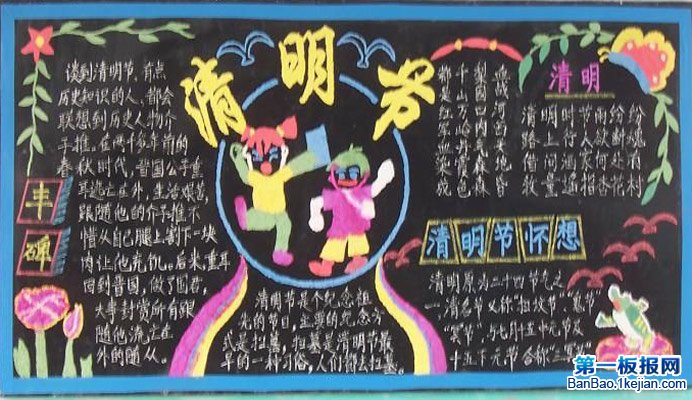 清明节
丰碑
谈到清明节,有点
历史知识的人,都会
联想到历史人物介
子推。在两千多年前的
春秋时代,晋国公子重
耳逃亡在外,生活艰苦,
跟随他的介子推不
惜从自己腿上割下一块
肉让他充饥。后来,重耳
回到晋国,做了国君,
大事封赏所有跟
随他流亡在
外的随从。
清明节是个纪念祖
先的节日,主要的纪念方
式是扫墓,扫墓是清明节最
早的一种习俗,人们都去扫墓。
血战河西
梨园口内
千山万岭丹
都是红军血染成
清明
清明时节雨纷纷
路上行人欲断魂
借问酒家何处有
牧童遥指杏花村
清明节怀想
清明原为二十四节气之
一,清名节又称“扫坟节”、“鬼节”
“冥节”,与七月十五中元节及
十月十五下元节合称“三冥节”
第一板报网
BanBao.1kejian.com